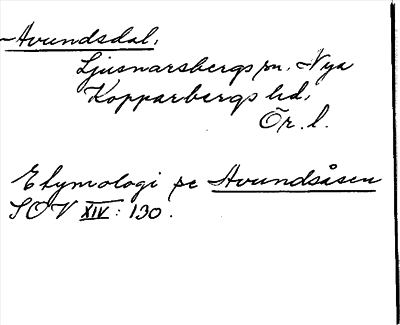 -Avundsdal,
Ljusnarsbergs sn. Nya
Kopparbergs hd,
Ör. l.
Etymologi se Avundsåsen
SOV XIV: 130.